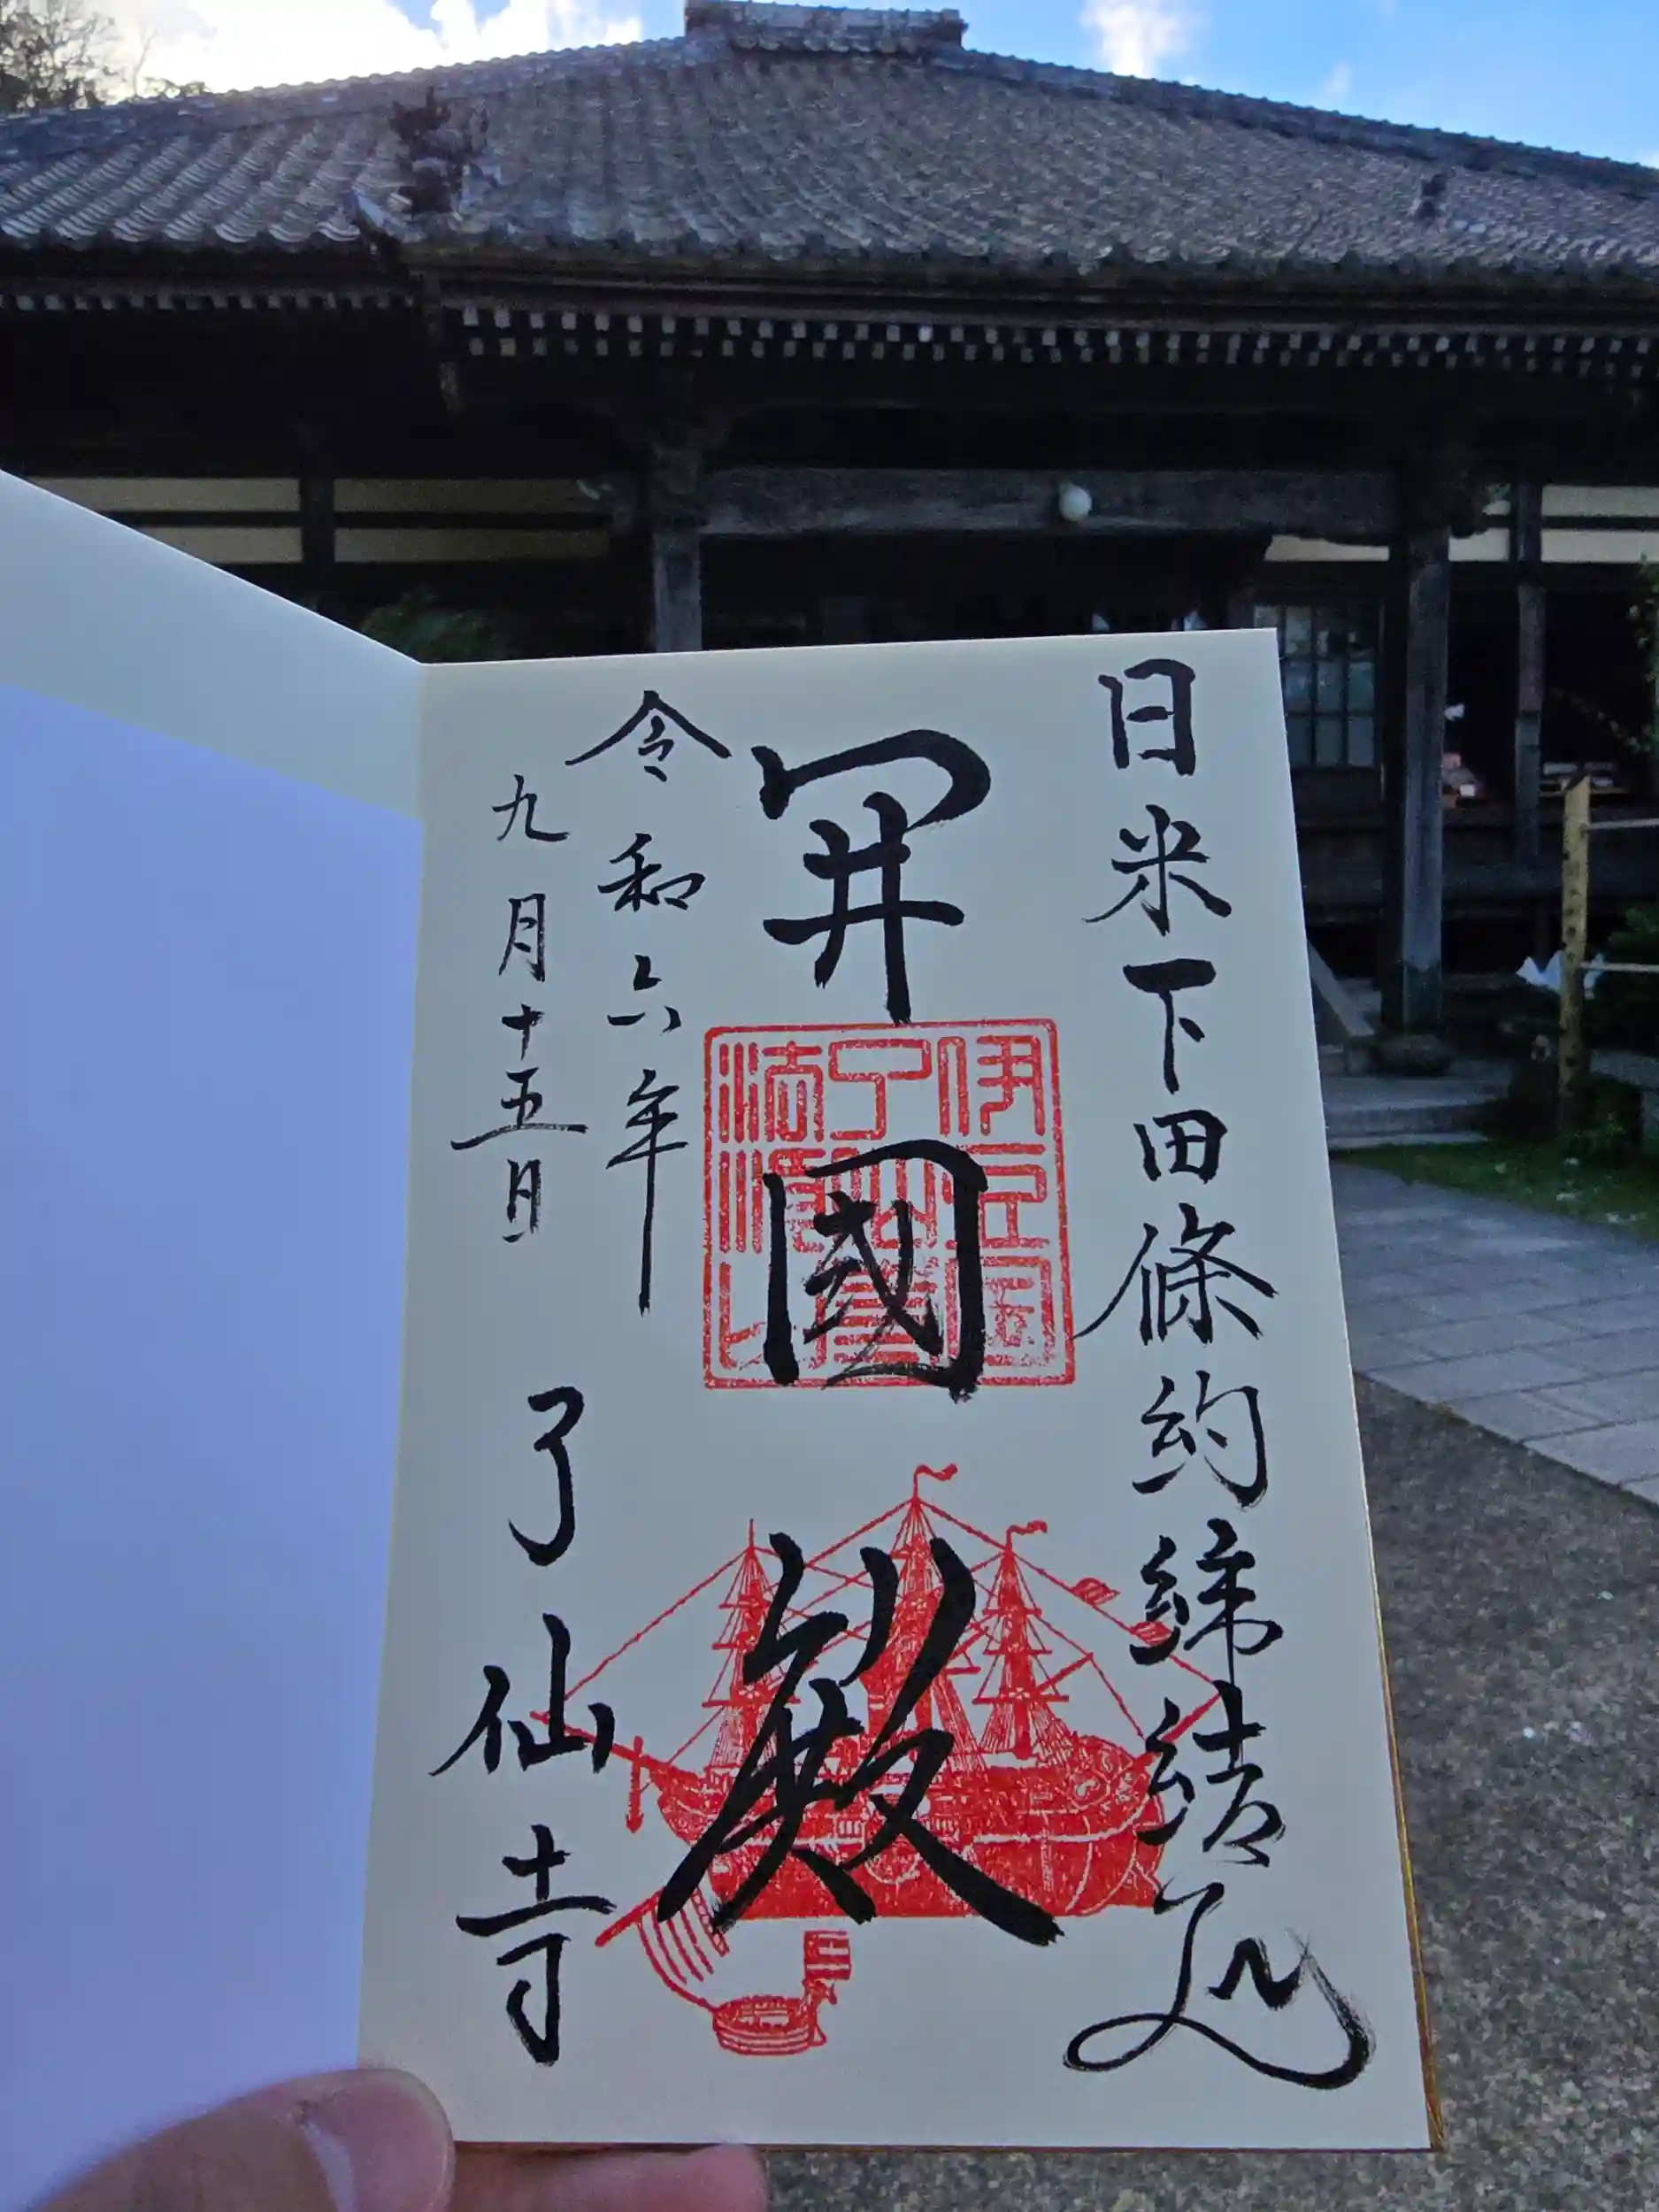 日米下田條約締結処
開國
伊豆国
了仙寺
法順山
令和六年
九月十五日
了仙寺